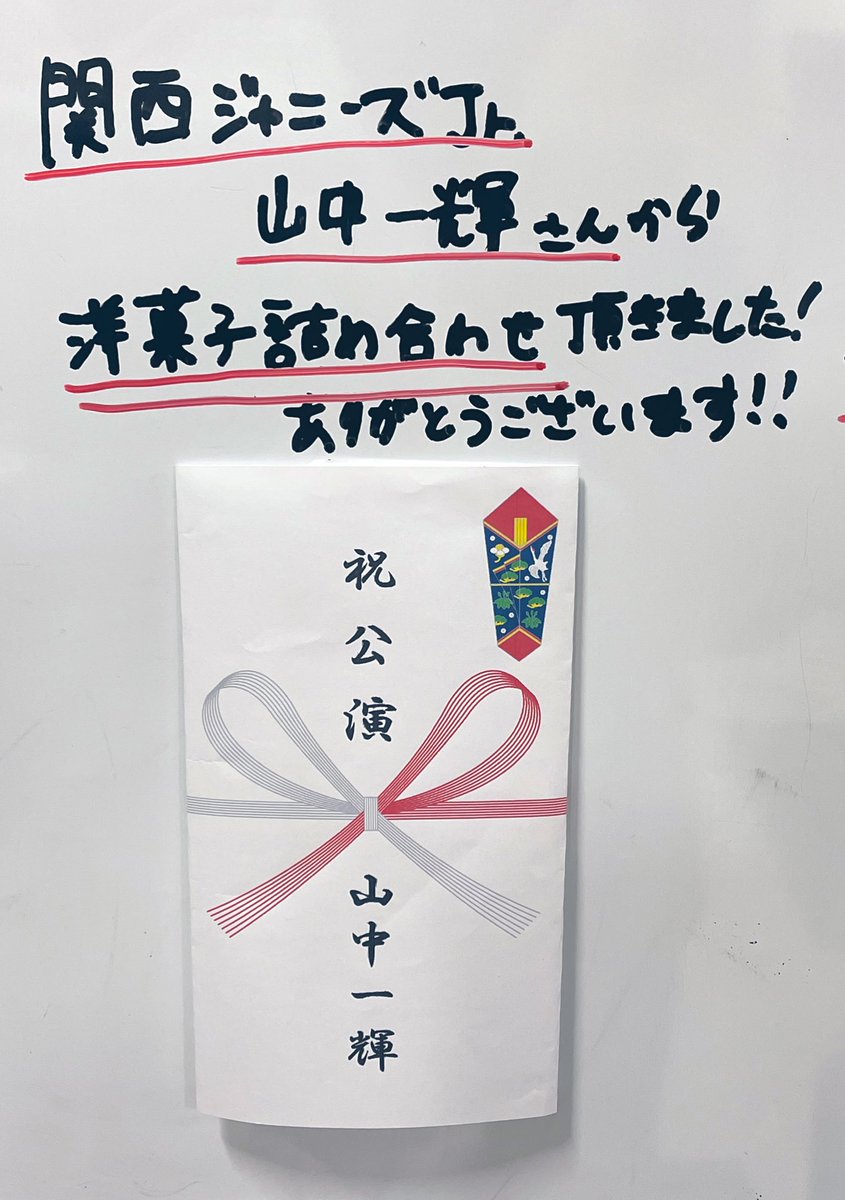 関西ジャニーズJr.
山中一輝さんから
洋菓子詰め合わせ頂きました!
ありがとうございます!!
祝公演
山中一輝